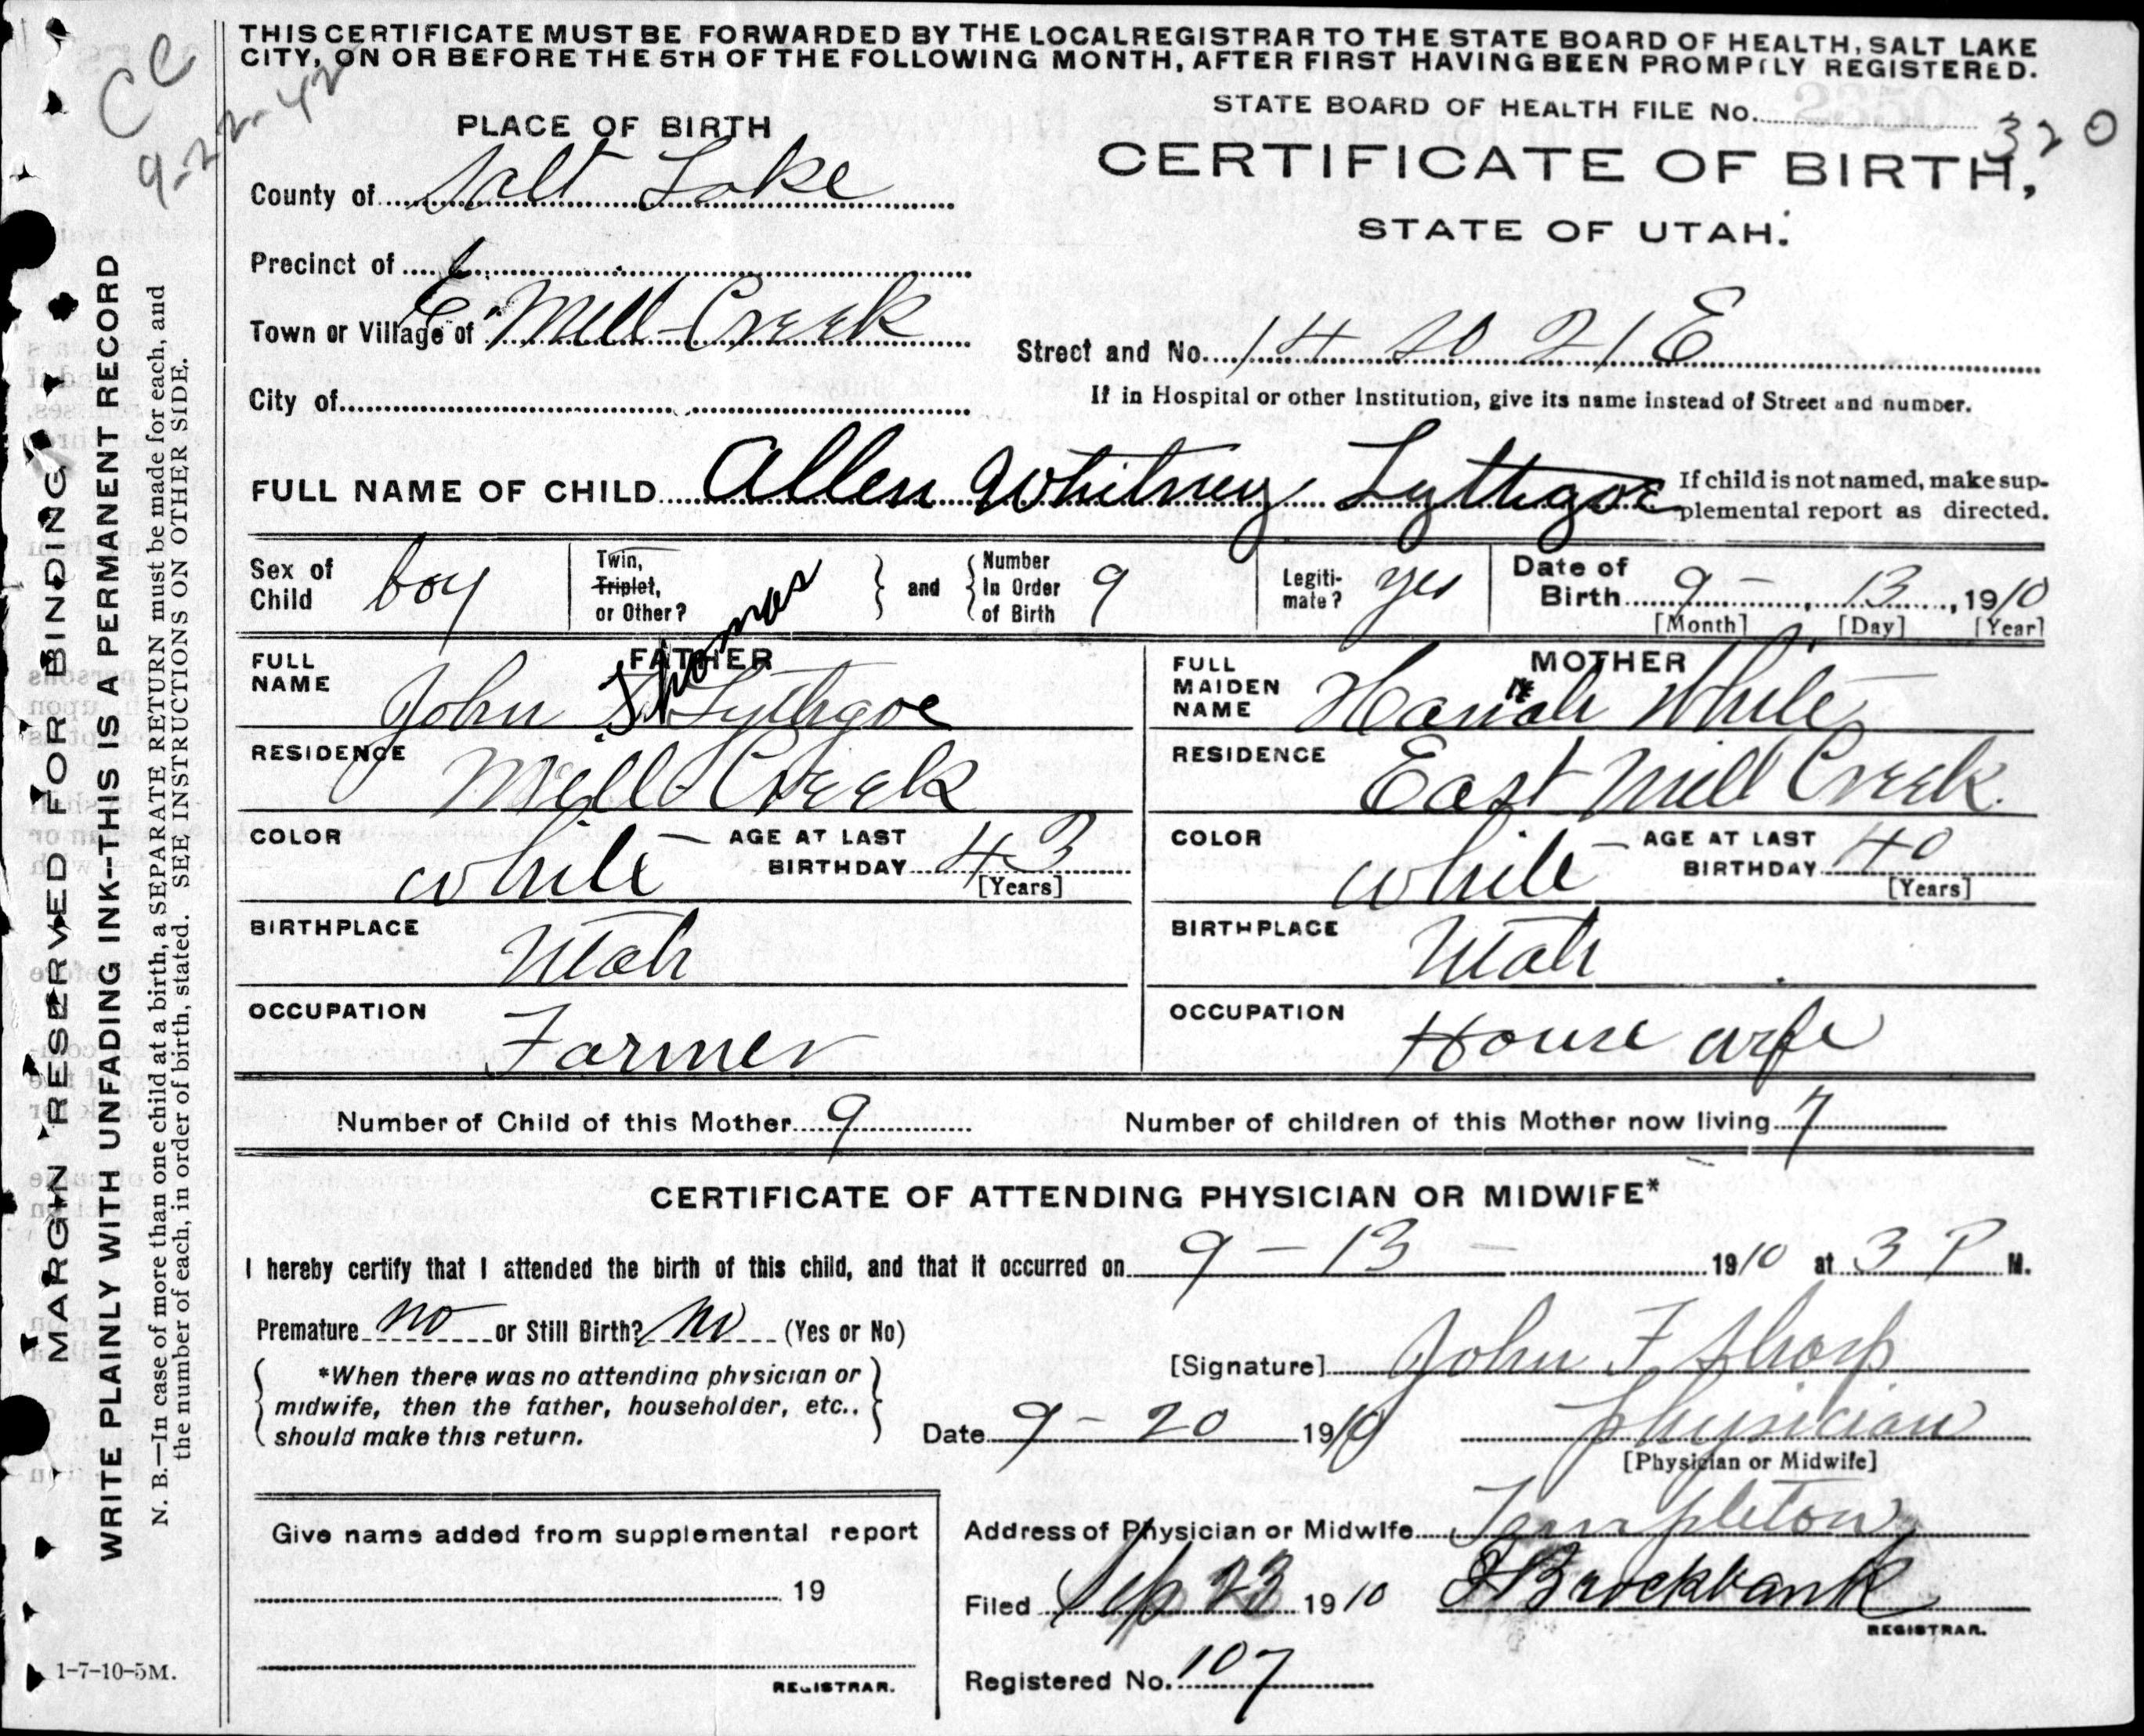 THIS CERTIFICATE MUST BE FORWARDED BY THE LOCAL REGISTRAR TO THE STATE BOARD OF HEALTH, SALT LAKE
CITY, ON OR BEFORE THE 5TH OF THE FOLLOWING MONTH, AFTER FIRST HAVING BEEN PROMPTLY REGISTERED.
CC
9-22-42
STATE BOARD OF HEALTH FILE No. 2350
320
PLACE OF BIRTH
CERTIFICATE OF BIRTH,
STATE OF UTAH.
County of Salt Lake
Precinct of
Town or Village of E Mill Creek
Street and No. 14 20 21 E
City of
If in Hospital or other Institution, give its name instead of Street and number.
FULL NAME OF CHILD Allen Whitney Lythgoe
If child is not named, make sup-
plemental report as directed.
Sex of Child boy
Twin, Triplet, or Other?
and
Number In Order of Birth 9
Legiti-mate? yes
Date of Birth 9 - 13, 1910
[Month] [Day] [Year]
FATHER
FULL NAME John Thomas Lythgoe
RESIDENCE Mill Creek
COLOR white
AGE AT LAST BIRTHDAY 43
[Years]
BIRTHPLACE Utah
OCCUPATION Farmer
MOTHER
FULL MAIDEN NAME Hannah White
RESIDENCE East Mill Creek
COLOR white
AGE AT LAST BIRTHDAY 40
[Years]
BIRTHPLACE Utah
OCCUPATION House wife
Number of Child of this Mother 9
Number of children of this Mother now living 7
CERTIFICATE OF ATTENDING PHYSICIAN OR MIDWIFE*
I hereby certify that I attended the birth of this child, and that it occurred on 9 - 13 - 1910 at 3 P M.
Premature no or Still Birth? no (Yes or No)
*When there was no attending physician or
midwife, then the father, householder, etc.,
should make this return.
[Signature] John F Sharp
Date 9 - 20 1910
Physician
[Physician or Midwife]
Give name added from supplemental report
19
REGISTRAR.
Address of Physician or Midwife Templeton
Filed Sep 23 1910
Brockbank
REGISTRAR.
Registered No. 107
MARGIN RESERVED FOR BINDING
WRITE PLAINLY WITH UNFADING INK--THIS IS A PERMANENT RECORD
N. B.—In case of more than one child at a birth, a SEPARATE RETURN must be made for each, and
the number of each, in order of birth, stated. SEE INSTRUCTIONS ON OTHER SIDE.
1-7-10-5M.